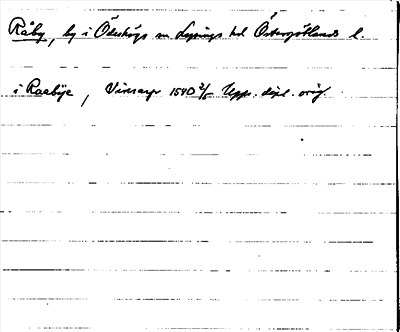 Råby, by i Ödeshögs sn Lysings hd Östergötlands l.
i Raabÿe, Vinsarp 1540 2/5 Upps. dipl. orig.